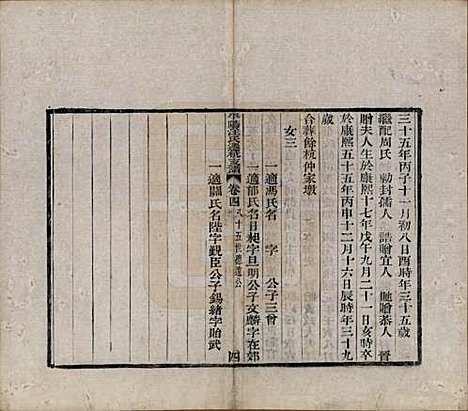 三十五年丙子十一月初八日酉時年三十五歲
繼配周氏 勅封孺人 誥贈宜人 貤贈恭人 晉
贈夫人生於康熙十七年戊午九月二十一日亥時卒
於康熙五十五年丙申十二月十六日辰時年三十九
歲
合葬餘杭仲家墩
女三
一適馮氏名 字 公子三曾
一適邵氏名日起字旦明公子文麟字在郊
一適關氏名陛字覲臣公子錫緒字貽武
卷四
八十五世
公
四